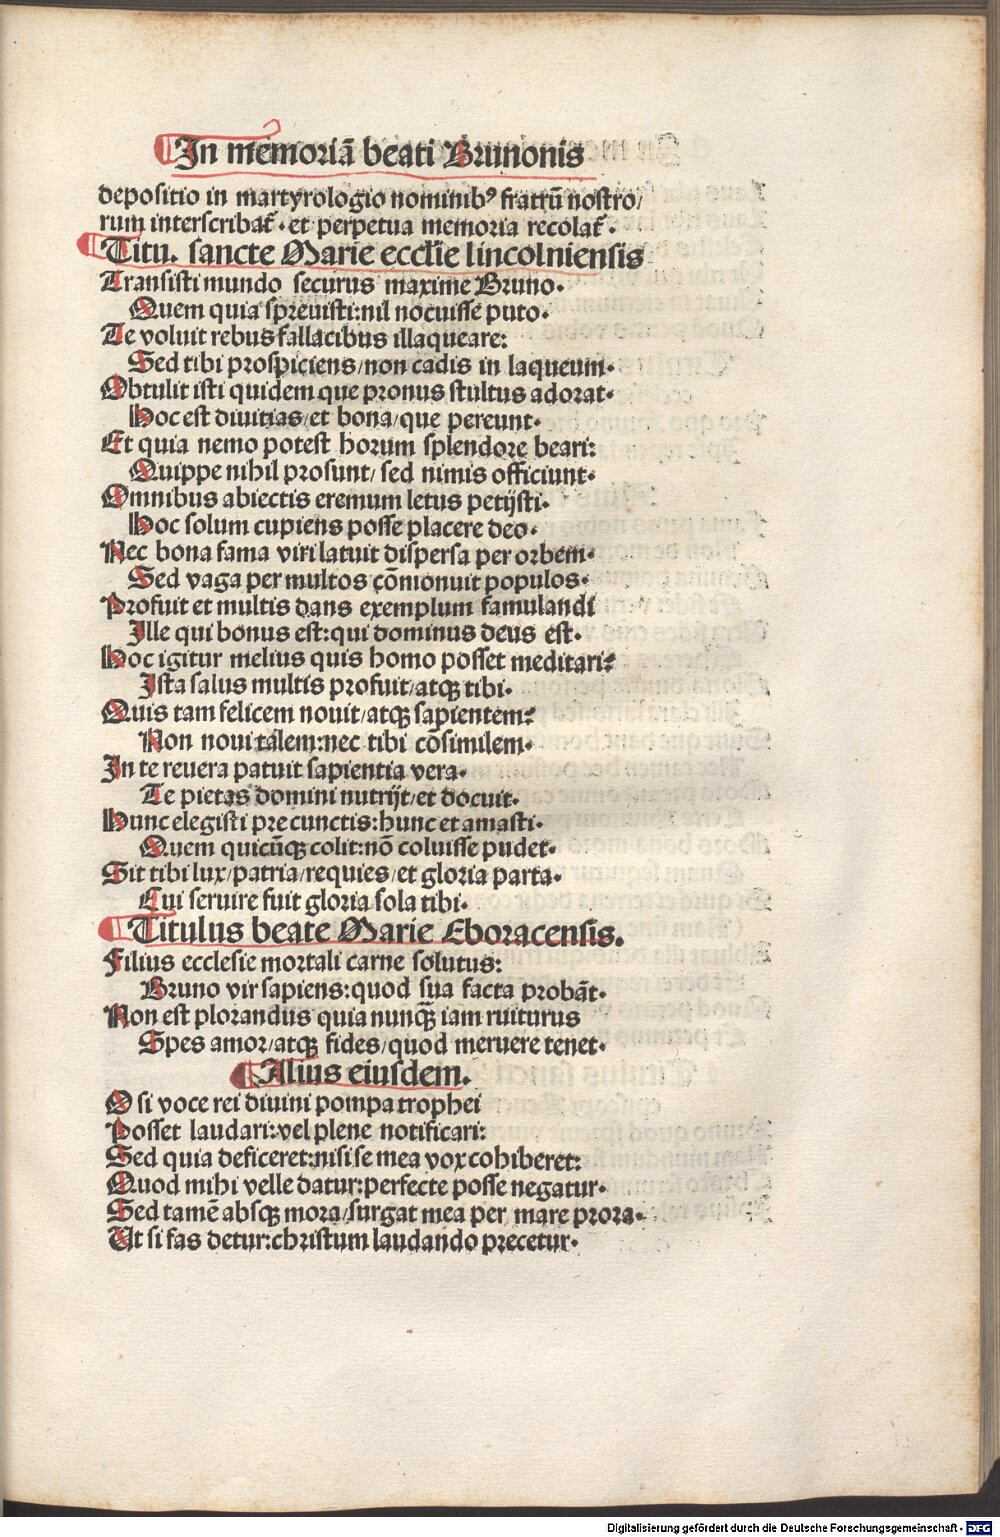 In memoriā beati Brunonis
depositio in martyrologio nominibꝰ fratrū nostro/
rum interscribat᷑· et perpetua memoria recolat᷑·
Titu. sancte Marie ecclie lincolniensis
Transisti mundo securus maxime Bruno·
Quem quia spreuisti:nil nocuisse puto·
Te voluit rebus fallacibus illaqueare:
Sed tibi prospiciens/non cadis in laqueum·
Obtulit isti quidem que pronus stultus adorat·
Hoc est diuitias/et bona/que pereunt·
Et quia nemo potest horum splendore beari:
Quippe nihil prosunt/ sed nimis officiunt·
Omnibus abiectis eremum letus petijsti·
Hoc solum cupiens posse placere deo·
Nec bona fama viri latuit dispersa per orbem·
Sed vaga per multos cōmonuit populos·
Profuit et multis dans exemplum famulandi
Ille qui bonus est:qui dominus deus est·
Hoc igitur melius quis homo posset meditari?
Ista salus multis profuit/atqꝫ tibi·
Quis tam felicem nouit/atqꝫ sapientem?
Non noui talem:nec tibi cōsimilem·
In te reuera patuit sapientia vera·
Te pietas domini nutrijt/et docuit·
Hunc elegisti pre cunctis:hunc et amasti·
Quem quicūqꝫ colit:nō coluisse pudet·
Sit tibi lux/patria/requies/et gloria parta·
Cui seruire fuit gloria sola tibi·
Titulus beate Marie Eboracensis.
Filius ecclesie mortali carne solutus:
Bruno vir sapiens:quod sua facta probāt·
Non est plorandus quia nunqꝫ iam ruiturus
Spes amor/atqꝫ fides/quod meruere tenet·
Alius eiusdem.
O si voce rei diuini pompa trophei
Posset laudari:vel plene notificari:
Sed quia deficeret:nisi se mea vox cohiberet:
Quod mihi velle datur:perfecte posse negatur·
Sed tamē absqꝫ mora/surgat mea per mare prora·
Ut si fas detur:christum laudando precetur·
Digitalisierung gefördert durch die Deutsche Forschungsgemeinschaft - DFG